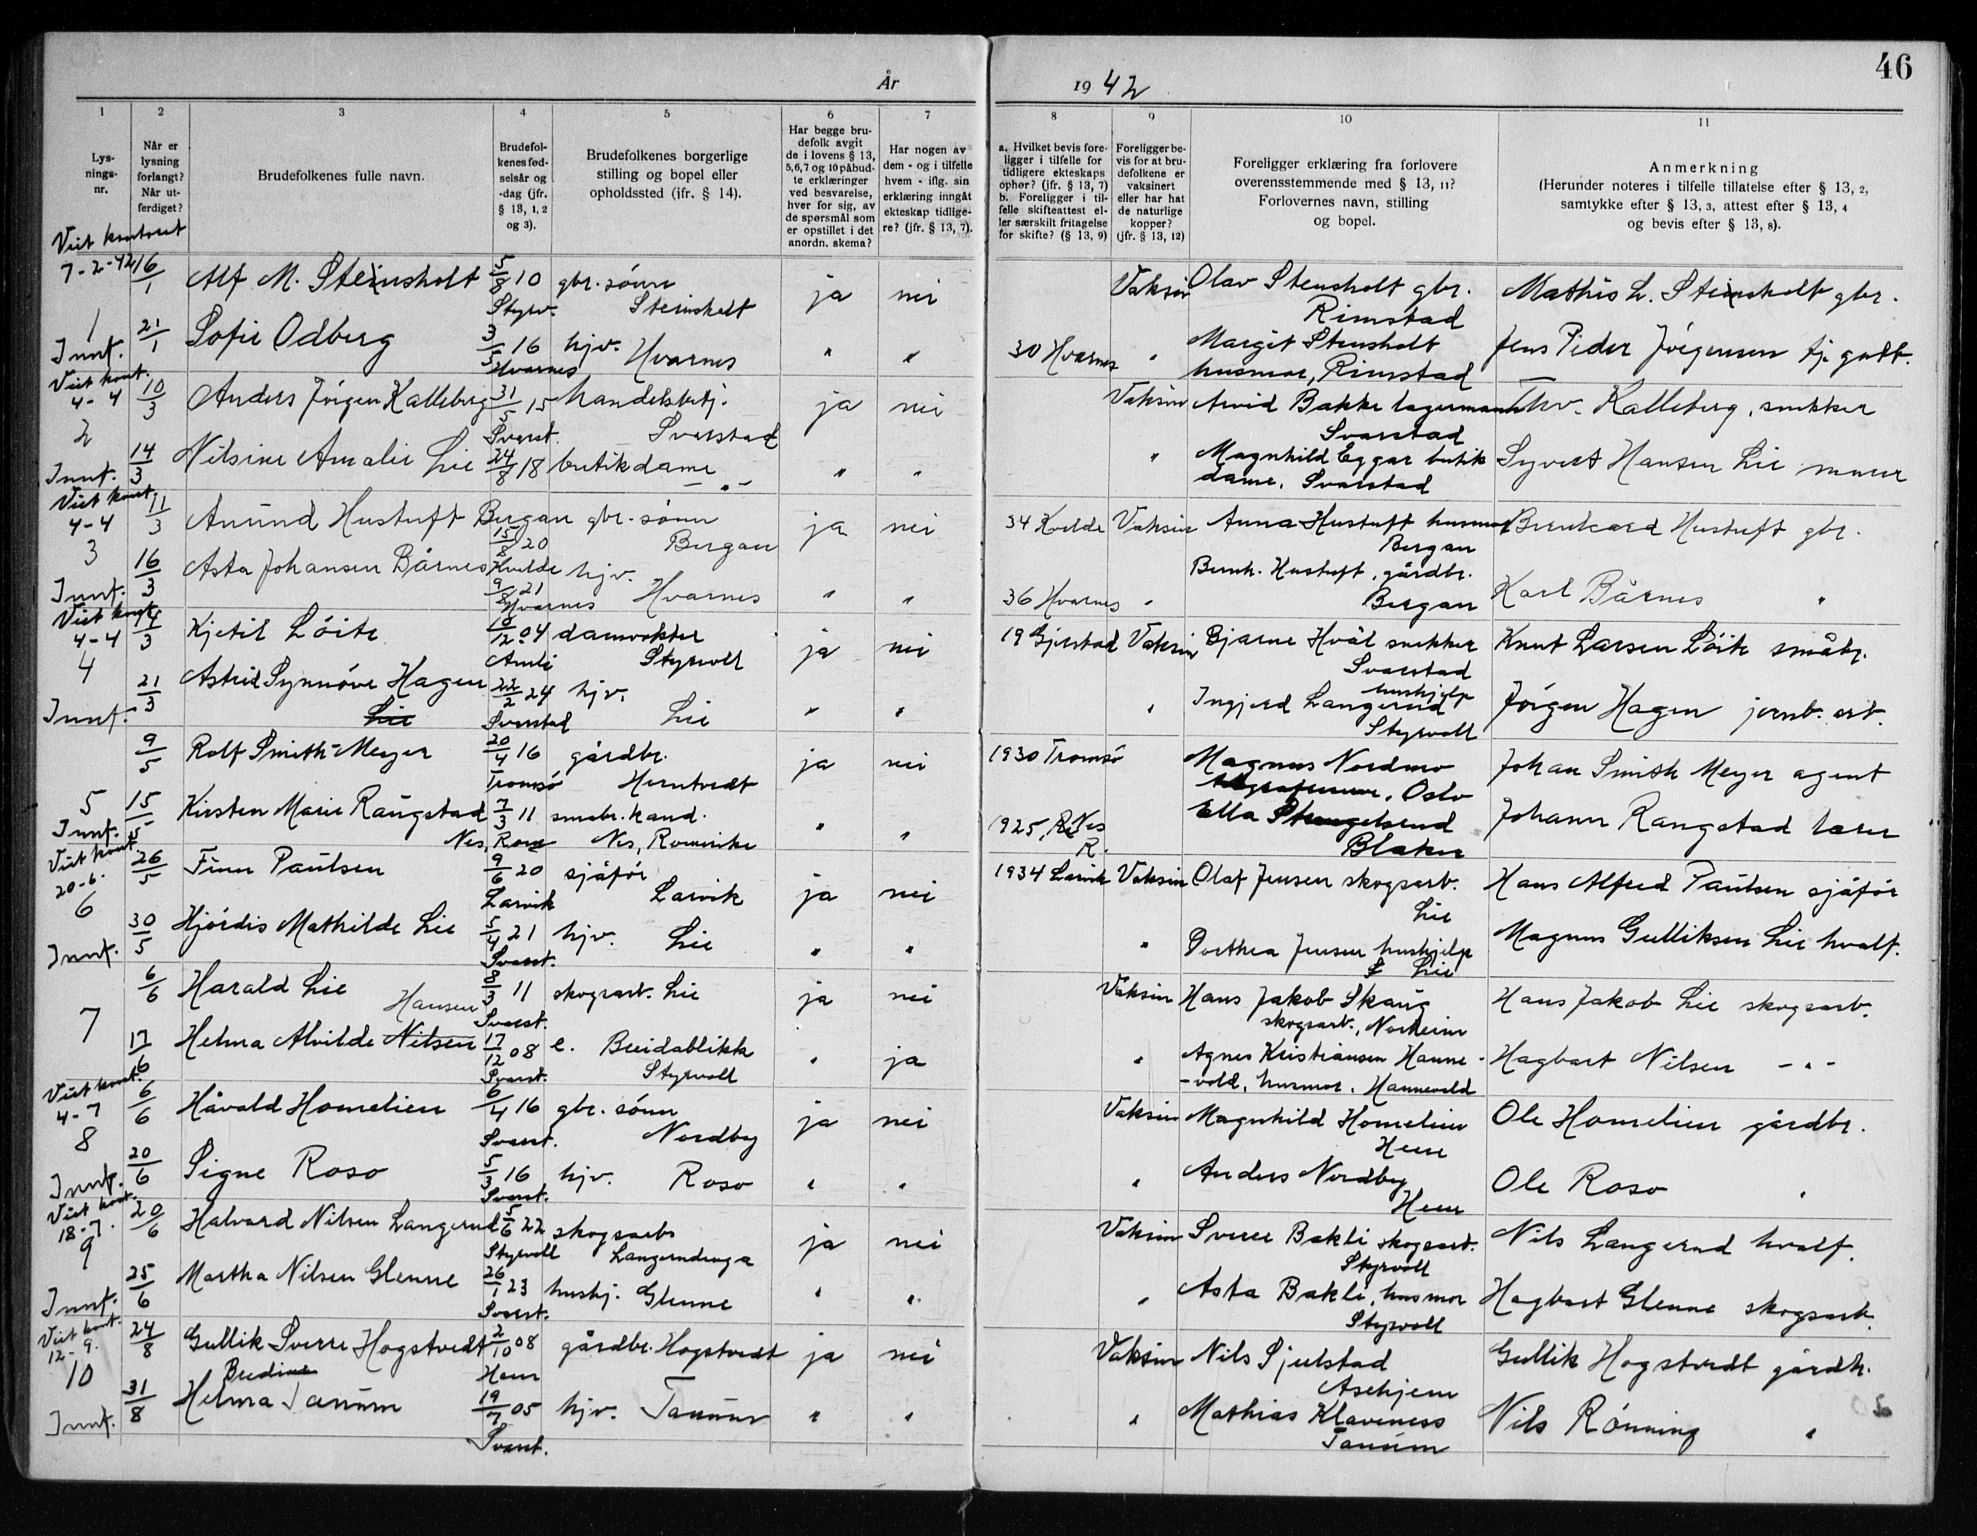 År
19 42
46
1
2
3
4
5
6
7
8
9
10
11
Lys-
nings-
nr.
Når er
lysning
forlangt?
Når ut-
ferdiget?
Brudefolkenes fulle navn.
Brudefol-
kenes fød-
selsår og
-dag (jfr.
§ 13, 1, 2
og 3).
Brudefolkenes borgerlige
stilling og bopel eller
opholdssted (ifr. § 14).
Har begge bru-
defolk avgit
de i lovens § 13,
5,6,7 og 10 påbud-
te erklæringer
ved besvarelse,
hver for sig, av
de spørsmål som
er opstillet i det
anordn. skema?
Har nogen av
dem - og i tilfelle
hvem - iflg. sin
erklæring inngåt
ekteskap tidlige-
re? (jfr. § 13, 7).
a. Hvilket bevis fore-
ligger i tilfelle for
tidligere ekteskaps
ophør? (jfr. § 13, 7)
b. Foreligger i til-
felle skifteattest el-
ler særskilt fritagelse
for skifte? (§ 13, 9)
Foreligger be-
vis for at bru-
defolkene er
vaksinert
eller har hat
de naturlige
kopper?
(jfr. § 13, 12)
Foreligger erklæring fra forlovere
overensstemmende med § 13, 11?
Forlovernes navn, stilling
og bopel.
Anmerkning
(Herunder noteres i tilfelle tillatelse efter § 13, 2,
samtykke efter § 13, 3, attest efter § 13, 4
og bevis efter § 13, 8).
Viet kontoret
7-2-42 16/1 Alf M. Steinsholt 5/8 10 gbr. sønn ja nei Vaksin Olav Stensholt gbr. Mathis L. Steinsholt gbr.
Styrv. Steinsholt Rimstad
1 21/1 Sofie Odberg 3/5 16 hjv. Hvarnes " " 30 Hvarnes " Margit Stensholt Jens Peder Jörgensen
Innf. Hvarnes husmor, Rimstad
Viet kont.
4-4 10/3 Anders Jörgen Kalleberg 31/5 15 handelsbetj. ja nei Vaksin Arvid Bakke lagermann Thv. Kalleberg, snekker
2 Svarst. Svarstad Svarstad
Innf. 14/3 Nilsine Amalie Lie 24/8 18 butikdame " " " Magnhild Eggar butik Syvert Hansen Lie murer
—"— dame, Svarstad
Viet kont.
4-4 11/3 Anund Hustuft Bergan gbr. sønn ja nei 34 Kvelde Vaksin Anna Hustuft husmor Bernhard Hustuft gbr.
3 15/8 20 Bergan Bergan
Kvelde
Innf. 16/3 Asta Johansen Bårnes 9/8 21 hjv. Hvarnes " " 36 Hvarnes " Bernh. Hustuft, gårdbr. Karl Bårnes "
Hvarnes Bergan
Viet kont.
4-4 14/3 Kjetil Löite 18/12 04 damvokter ja nei 19 Gjerstad Vaksin Bjarne Hvål snekker Knut Larsen Löite småbr.
4 Amli Styrvoll Svarstad
Innf. 21/3 Astrid Synnöve Hagen 22/2 24 hjv. " " " Ingjerd Langerud hushjelp Jörgen Hagen jernb. arb.
Lie Svarstad Lie Styrvoll
9/5 Rolf Smith-Meyer 20/4 16 gårdbr. ja nei 1930 Tromsö Magnus Nordmo Johan Smith Meyer agent
Tromsö Herntvedt Oslo
5 15/5 Kirsten Marie Rangstad 7/3 11 småbr. kand. " " 1925, Nes Ella Johann Rangstad lærer
Innf. Nes, Rom Nes, Romerike R. Blaker
Viet kont.
20-6. 26/5 Finn Paulsen 9/6 20 sjåför ja nei 1934 Larvik Vaksin Olaf Jensen skogsarb. Hans Alfred Paulsen sjåför
6 Larvik Larvik Lie
Innf. 30/5 Hjördis Mathilde Lie 5/4 21 hjv. Lie " " " Dorthea Jensen hushjelp Magnus Gulliksen Lie hvalf.
Svarst. Lie
6/6 Harald Lie 8/3 11 skogsarb. Lie ja nei Vaksin Hans Jakob Skaug Hans Jakob Lie skogsarb.
7 Hansen Svarst. skogsarb., Norheim
17/6 Helma Alvilde Nilsen 17/12 08 e. Breidablikk " ja " Agnes Kristiansen Hanne- Hagbart Nilsen —"—
Svarst. Styrvoll -vold, husmor, Hannevold
Viet kont.
4-7 6/6 Håvald Homelien 6/4 16 gbr. sønn ja nei Vaksin Magnhild Homelien Ole Homelien gårdbr.
8 Svarst. Nordby Hem
Innf. 20/6 Signe Roso 5/3 16 hjv. Roso " " " Anders Nordby Ole Roso "
Svarst. Hem
Viet kont.
18-7. 20/6 Halvard Nilsen Langerud 5/6 22 skogsarb ja nei Vaksin Sverre Bakli skogsarb. Nils Langerud hvalf.
9 Styrvoll Styrvoll
Innf. 25/6 Martha Nilsen Glenne 26/1 23 hushj. Glenne " " " Asta Bakli, husmor Hagbart Glenne skogsarb.
Svarst. Styrvoll
Viet kont.
12-9. 24/8 Gullik Sverre Hogstvedt 2/10 08 gårdbr. Hogstvedt ja nei Vaksin Nils Sjulstad Gullik Hogstvedt gårdb.
10 Bredine Hem Askjem
Innf. 31/8 Helma Tanum 19/7 05 hjv. Tanum " " " Mathias Klaveness Nils Rönning "
Svarst. Tanum